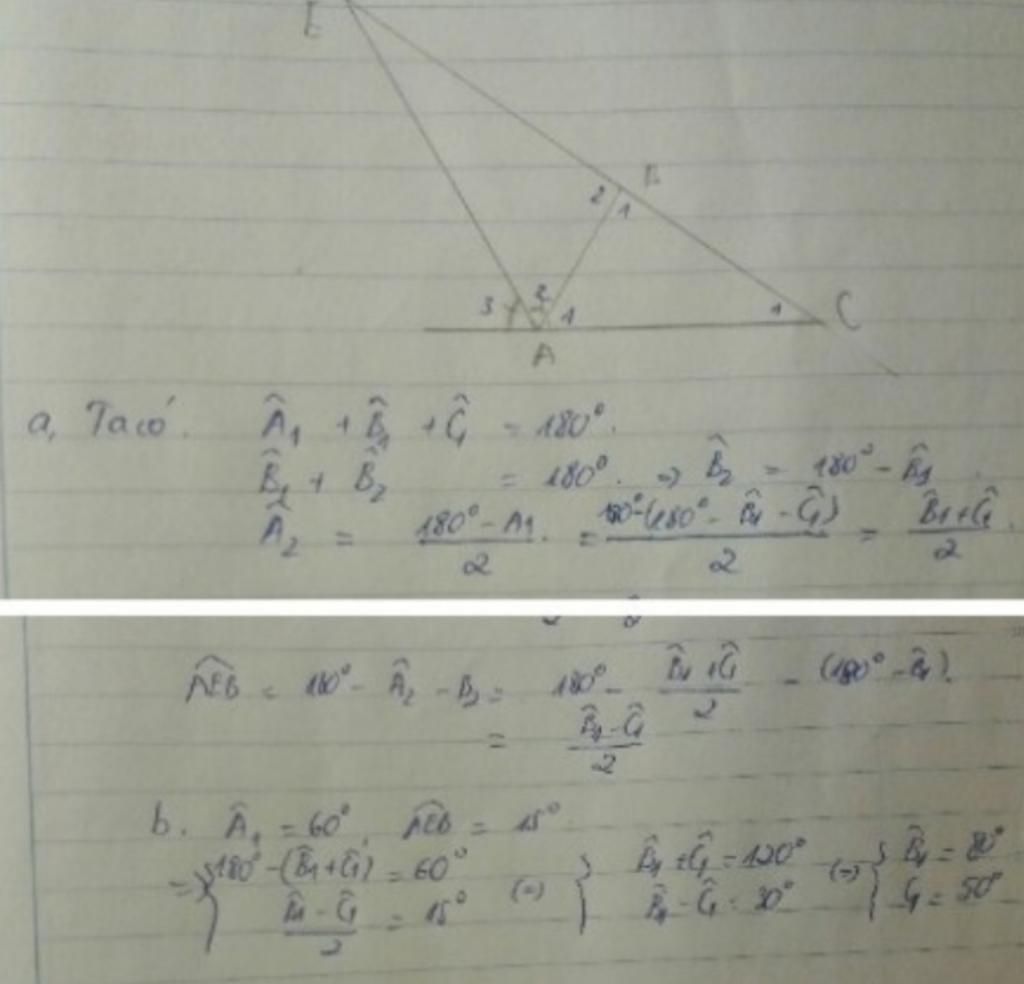 E
2 B
1
3 2 1 1 C
A
a, Ta có. Â₁ + B̂₁ + Ĉ₁ = 180°.
B̂₁ + B̂₂ = 180°. => B̂₂ = 180° - B̂₁.
Â₂ = (180° - A₁)/2 = (180° - (180° - B̂₁ - Ĉ₁))/2 = (B̂₁ + Ĉ₁)/2.
AEB = 180° - Â₂ - B₂ = 180° - (B̂₁ + Ĉ₁)/2 - (180° - B̂₁).
= (B̂₁ - Ĉ₁)/2
b. Â₁ = 60°, AEB = 15°
=> { 180° - (B̂₁ + Ĉ₁) = 60° (=) { B̂₁ + Ĉ₁ = 120° (=) { B̂₁ = 80°
(B̂₁ - Ĉ₁)/2 = 15° B̂₁ - Ĉ₁ = 30° C₁ = 50°